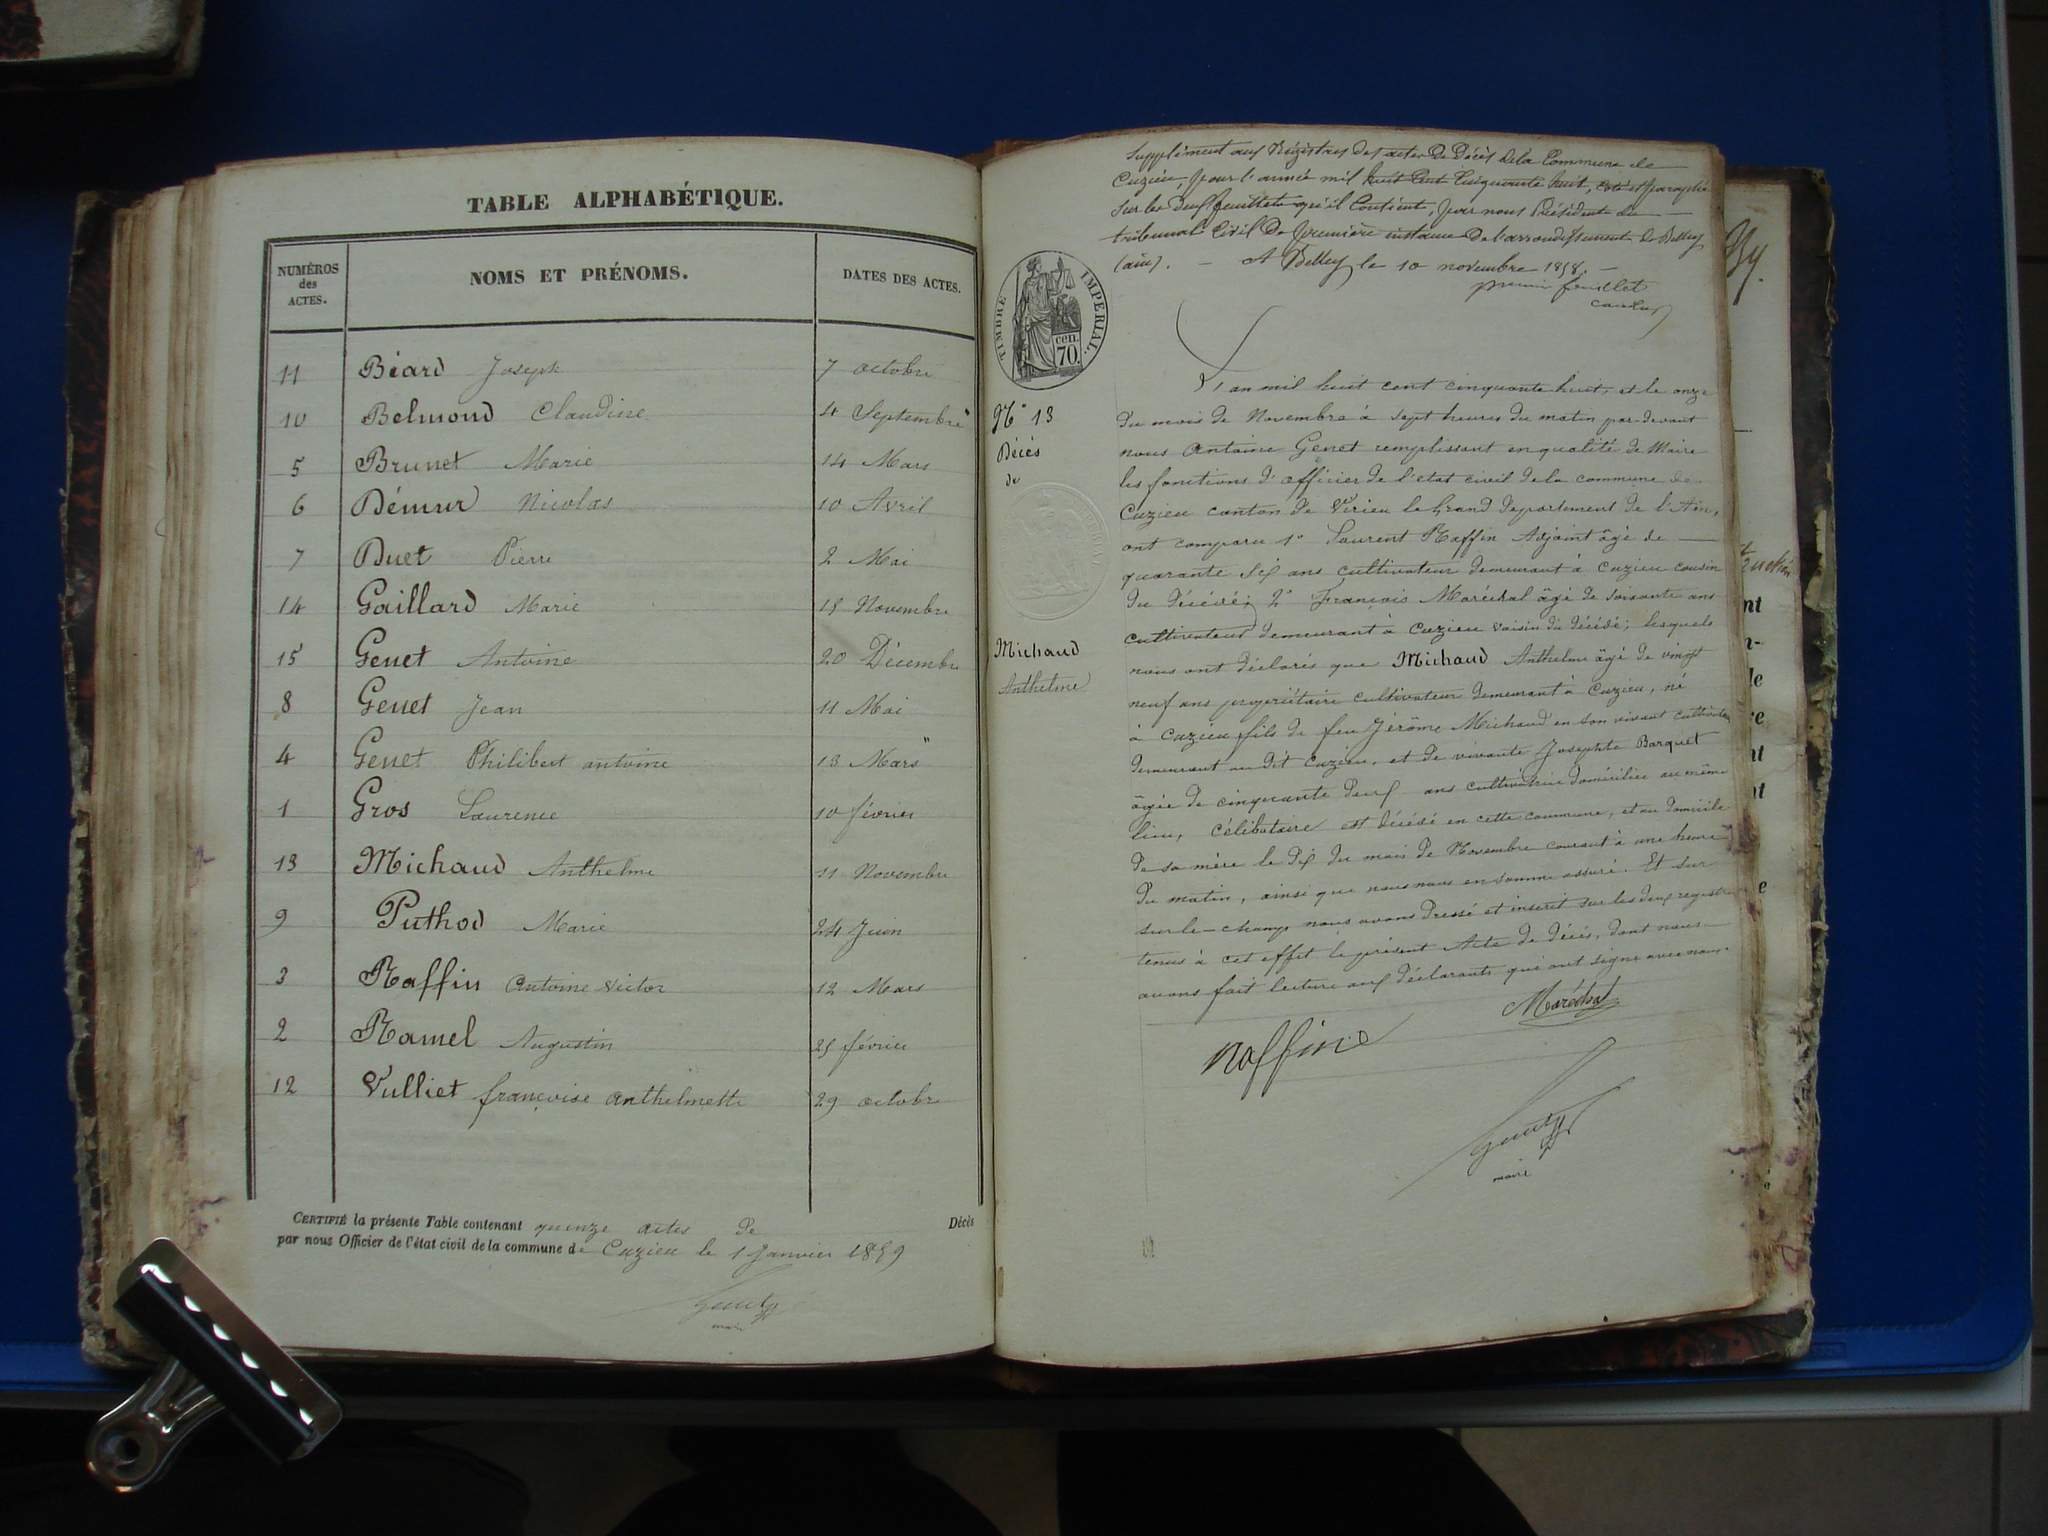 TABLE ALPHABÉTIQUE.
NUMÉROS des ACTES.
NOMS ET PRÉNOMS.
DATES DES ACTES.
11 Béard Joseph 7 octobre
10 Belmond Claudine 4 Septembre
5 Brunet Marie 14 Mars
6 Démur Nicolas 10 Avril
7 Duet Pierre 2 Mai
14 Gaillard Marie 18 Novembre
15 Genet Antoine 20 Décembre
8 Genet Jean 11 Mai
4 Genet Philibert antoine 13 Mars
1 Gros Laurence 10 février
13 Michaud Anthelme 11 Novembre
9 Puthod Marie 24 Juin
3 Raffin Antoine Victor 12 Mars
2 Ramel Augustin 25 février
12 Vulliet françoise anthelmette 29 octobre
CERTIFIÉ la présente Table contenant quinze actes de Décès
par nous Officier de l'état civil de la commune de Cuzieu le 1 Janvier 1859
Genet
maire
Supplément aux Régistres des actes de Décès de la Commune de
Cuzieu, pour l'année mil huit cent Cinquante huit, coté et paraphé
sur les deux feuillets qu'il Contient, par nous Président du
tribunal Civil de première instance de l'arrondissement de Belley
(ain). - A Belley le 10 novembre 1858. -
premier feuillet
TIMBRE IMPÉRIAL.
70 cen.
N° 13
Décès
de
Michaud
Anthelme
L'an mil huit cent cinquante huit, et le onze
du mois de Novembre à sept heures du matin par-devant
nous Antoine Genet remplissant en qualité de Maire
les fonctions d'officier de l'état civil de la commune de
Cuzieu canton de Virieu le Grand département de l'Ain,
ont comparu 1° Laurent Raffin Adjoint âgé de
quarante six ans cultivateur demeurant à Cuzieu cousin
du décédé; 2° François Maréchal âgé de soixante ans
cultivateur demeurant à Cuzieu voisin du décédé; lesquels
nous ont déclarés que Michaud Anthelme âgé de vingt
neuf ans propriétaire cultivateur demeurant à Cuzieu, né
à Cuzieu fils de feu Jérôme Michaud en son vivant cultivateur
demeurant au dit Cuzieu, et de vivante Josephte Barquet
âgée de cinquante deux ans cultivatrice domiciliée au même
lieu, célibataire est décédé en cette commune, et au domicile
de sa mère le dix du mois de Novembre courant à une heure
du matin, ainsi que nous nous en somme assuré. Et sur
sur le-champ nous avons dressé et inscrit sur les deux registres
tenus à cet effet le présent Acte de décès, dont nous
avons fait lecture aux déclarants qui ont signé avec nous.
Maréchal
Raffin
Genet
maire